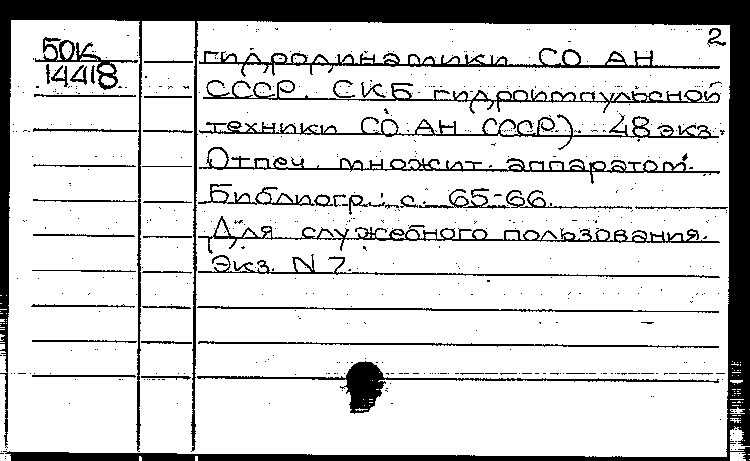 2
50К
14418
гидродинамики СО АН
СССР. СКБ гидроимпульсной
техники СО АН СССР). 48 экз.
Отпеч. множит. аппаратом.
Библиогр.: с. 65-66.
Для служебного пользования.
Экз. N 7.